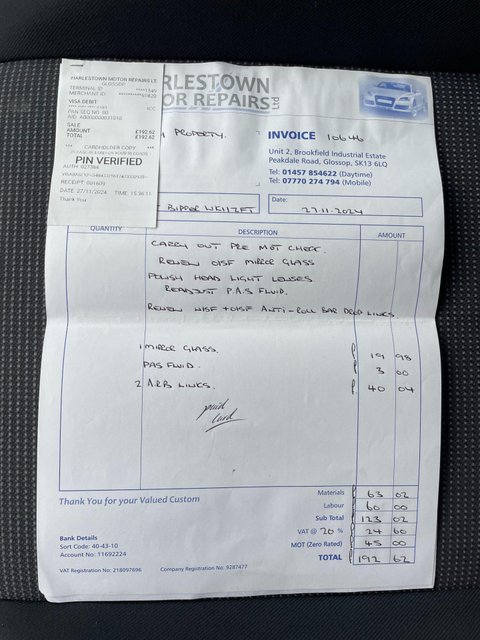 HARLESTOWN MOTOR REPAIRS LT
GLOSSOP
TERMINAL ID ****1549
MERCHANT ID
VISA DEBIT
ICC
PAN SEQ NO. 00
AID: A0000000031010
SALE
AMOUNT £192.62
TOTAL £192.62
*** CARDHOLDER COPY ***
PIN VERIFIED
RECEIPT: 001609
DATE: 27/11/2024 TIME: 15:36:13
Thank You
RLESTOWN
OR REPAIRS Ltd
PROPERTY.
INVOICE 10646
Unit 2, Brookfield Industrial Estate
Peakdale Road, Glossop, SK13 6LQ
Tel: 01457 854622 (Daytime)
Tel: 07770 274 794 (Mobile)
BIPPER WK11ZFT
Date:
27-11-2024
QUANTITY DESCRIPTION AMOUNT
CARRY OUT PRE MOT CHECK.
RENEW O/SF MIRROR GLASS
POLISH HEAD LIGHT LENSES
READJUST P.A.S FLUID.
RENEW N/SF + O/SF ANTI-ROLL BAR DROP LINKS
1 MIRROR GLASS. £ 19 98
PAS FLUID. £ 3 00
2 A.R.B LINKS. £ 40 04
paid
card
Thank You for your Valued Custom
Materials £ 63 02
Labour 60 00
Sub Total £ 123 02
VAT @ 20 % 24 60
MOT (Zero Rated) 45 00
TOTAL £ 192 62
Bank Details
Sort Code: 40-43-10
Account No: 11692224
VAT Registration No: 218097696 Company Registration No: 9287477